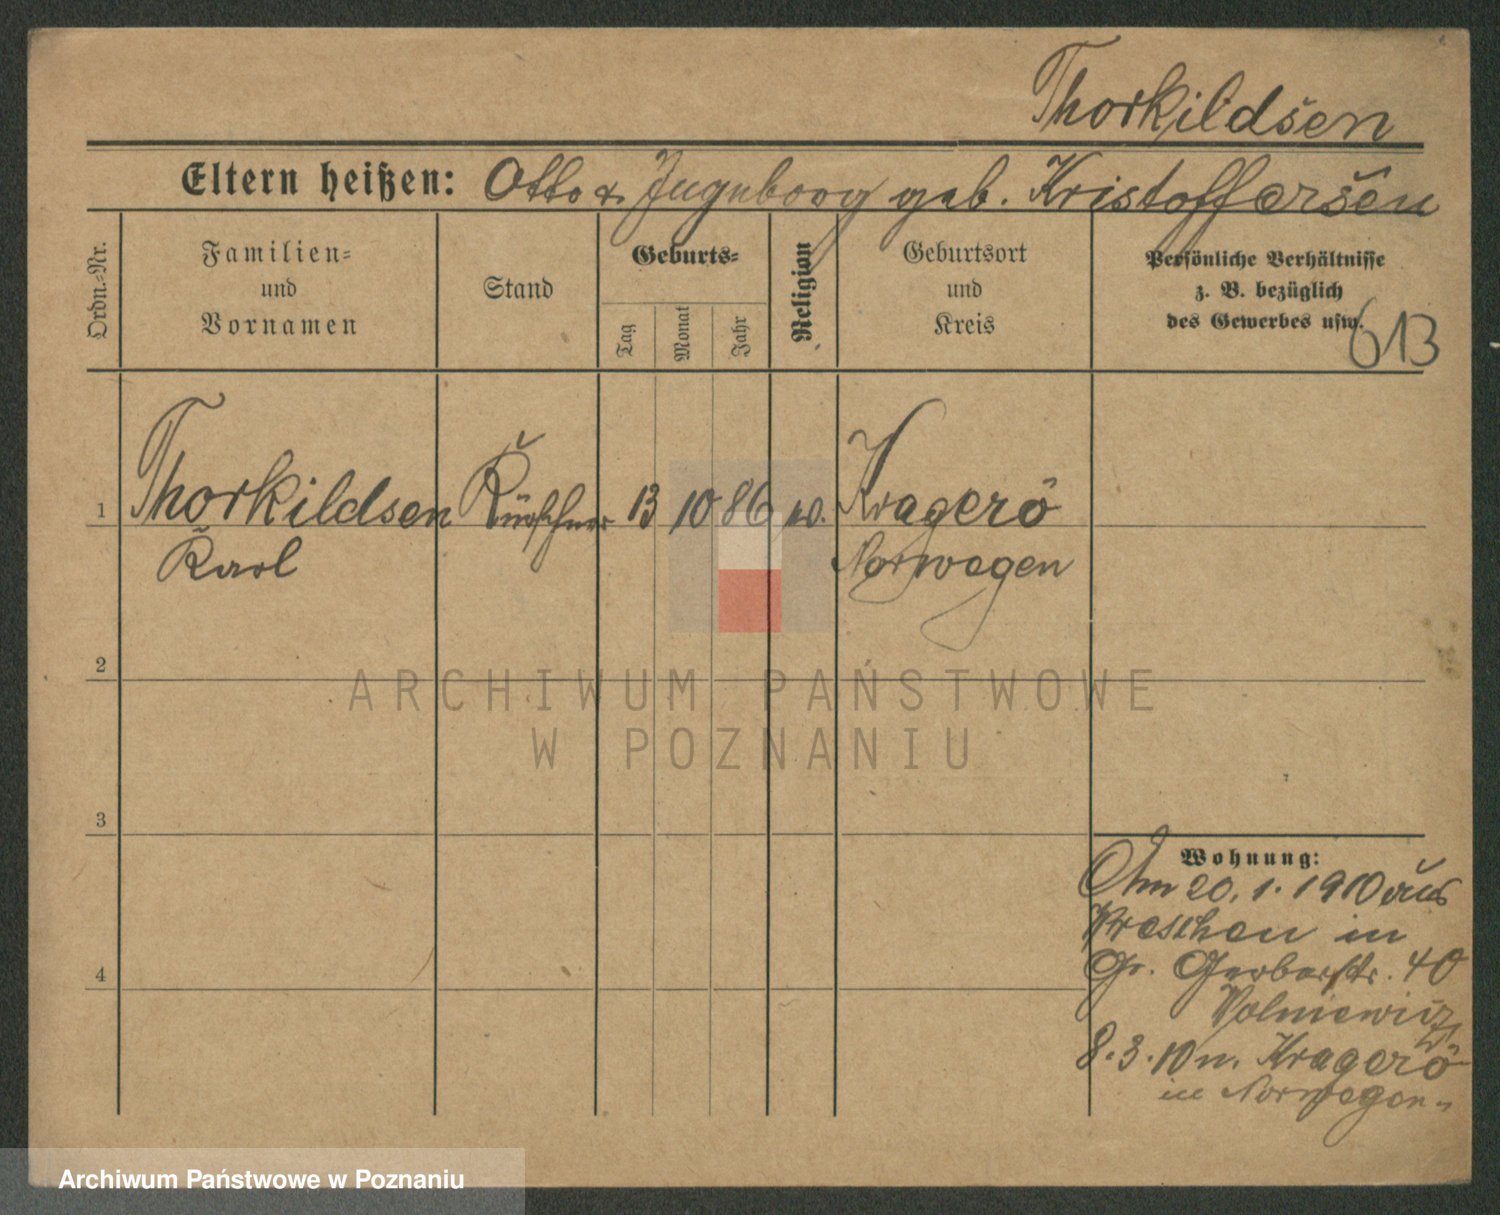 Thorkildsen
Eltern heißen: Otto u. Ingeborg geb. Kristoffersen
Ordn.-Nr.
Familien-
und
Vornamen
Stand
Geburts-
Tag
Monat
Jahr
Religion
Geburtsort
und
Kreis
Persönliche Verhältnisse
z. B. bezüglich
des Gewerbes usw.
613
1 Thorkildsen Kürschner 13 10 86 Kragerö
Karl Norwegen
2
3
4
Wohnung:
Am 20.1.1910 aus
Wreschen in
Gr. Gerberstr. 40
8.3.10 n. Kragerö
in Norwegen
ARCHIWUM PAŃSTWOWE
W POZNANIU
Archiwum Państwowe w Poznaniu